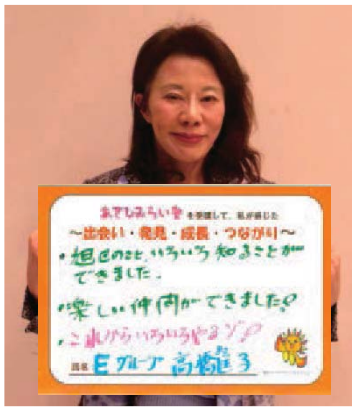 あさひみらい塾を受講して、私が感じた
〜出会い・発見・成長・つながり〜
・旭区のこと、いろいろ知ることが
できました。
・楽しい仲間ができました♪
・これからいろいろやるゾ♪
氏名 Eグループ 高橋